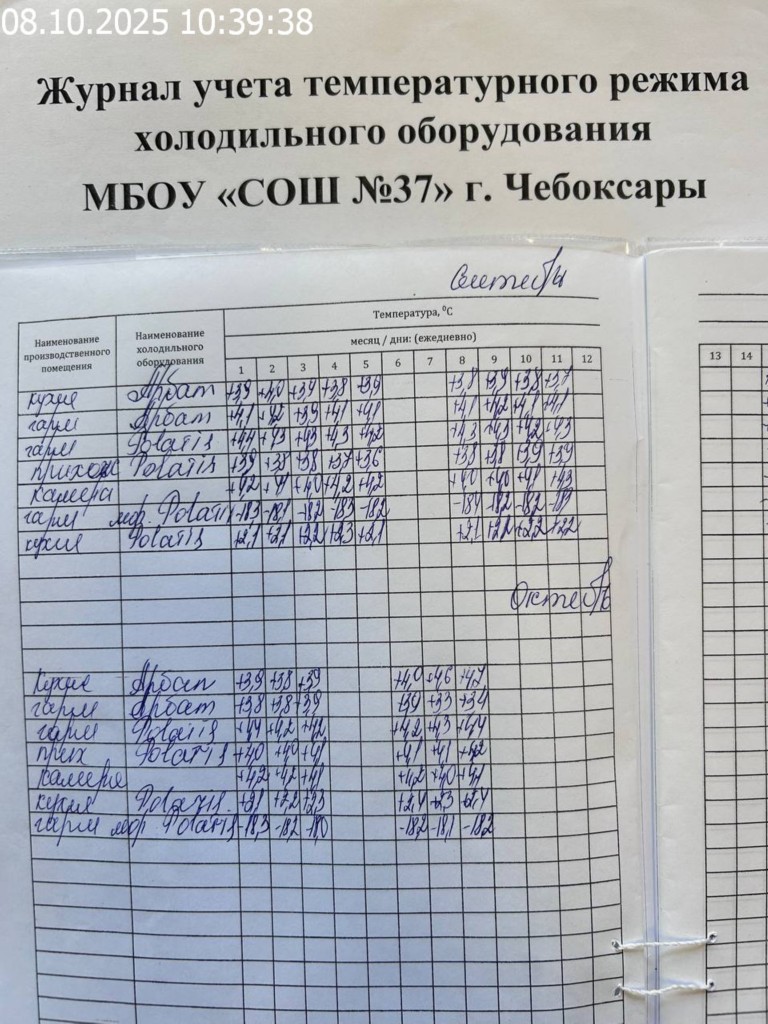 08.10.2025 10:39:38
Журнал учета температурного режима
холодильного оборудования
МБОУ «СОШ №37» г. Чебоксары
Сентябрь
Наименование производственного помещения
Наименование холодильного оборудования
Температура, ⁰С
месяц / дни: (ежедневно)
1 2 3 4 5 6 7 8 9 10 11 12
13 14
кухня Арбат +3,9 +4,0 +3,9 +3,8 +3,9 +3,8 +3,9 +3,8 +3,7
гарм Арбат +4,1 +4,2 +3,9 +4,1 +4,1 +4,1 +4,2 +4,1 +4,1
гарм Polaris +4,4 +4,3 +4,3 +4,3 +4,2 +4,3 +4,3 +4,2 +4,3
Polaris +3,9 +3,8 +3,8 +3,7 +3,6 +3,8 +3,8 +3,9 +3,9
камера +4,2 +4,1 +4,0 +4,2 +4,2 +4,0 +4,0 +4,1 +4,3
гарм мор. Polaris -18,3 -18,1 -18,2 -18,3 -18,2 -18,1 -18,2 -18,2
кухня Polaris +2,1 +2,1 +2,2 +2,3 +2,1 +2,1 +2,2 +2,2 +2,2
Октябрь
Кухня Арбат +3,9 +3,8 +3,9 +4,0 +4,6 +4,7
гарм Арбат +3,8 +3,8 +3,9 +3,4 +3,3 +3,4
гарм Polaris +4,4 +4,2 +4,2 +4,2 +4,3 +4,4
прих Polaris +4,0 +4,0 +4,1 +4,1 +4,1 +4,2
камера +4,2 +4,2 +4,1 +4,2 +4,0 +4,1
кухня Polaris +2,1 +2,2 +2,3 +2,4 +2,3 +2,4
гарм мор. Polaris -18,3 -18,2 -18,0 -18,2 -18,1 -18,2